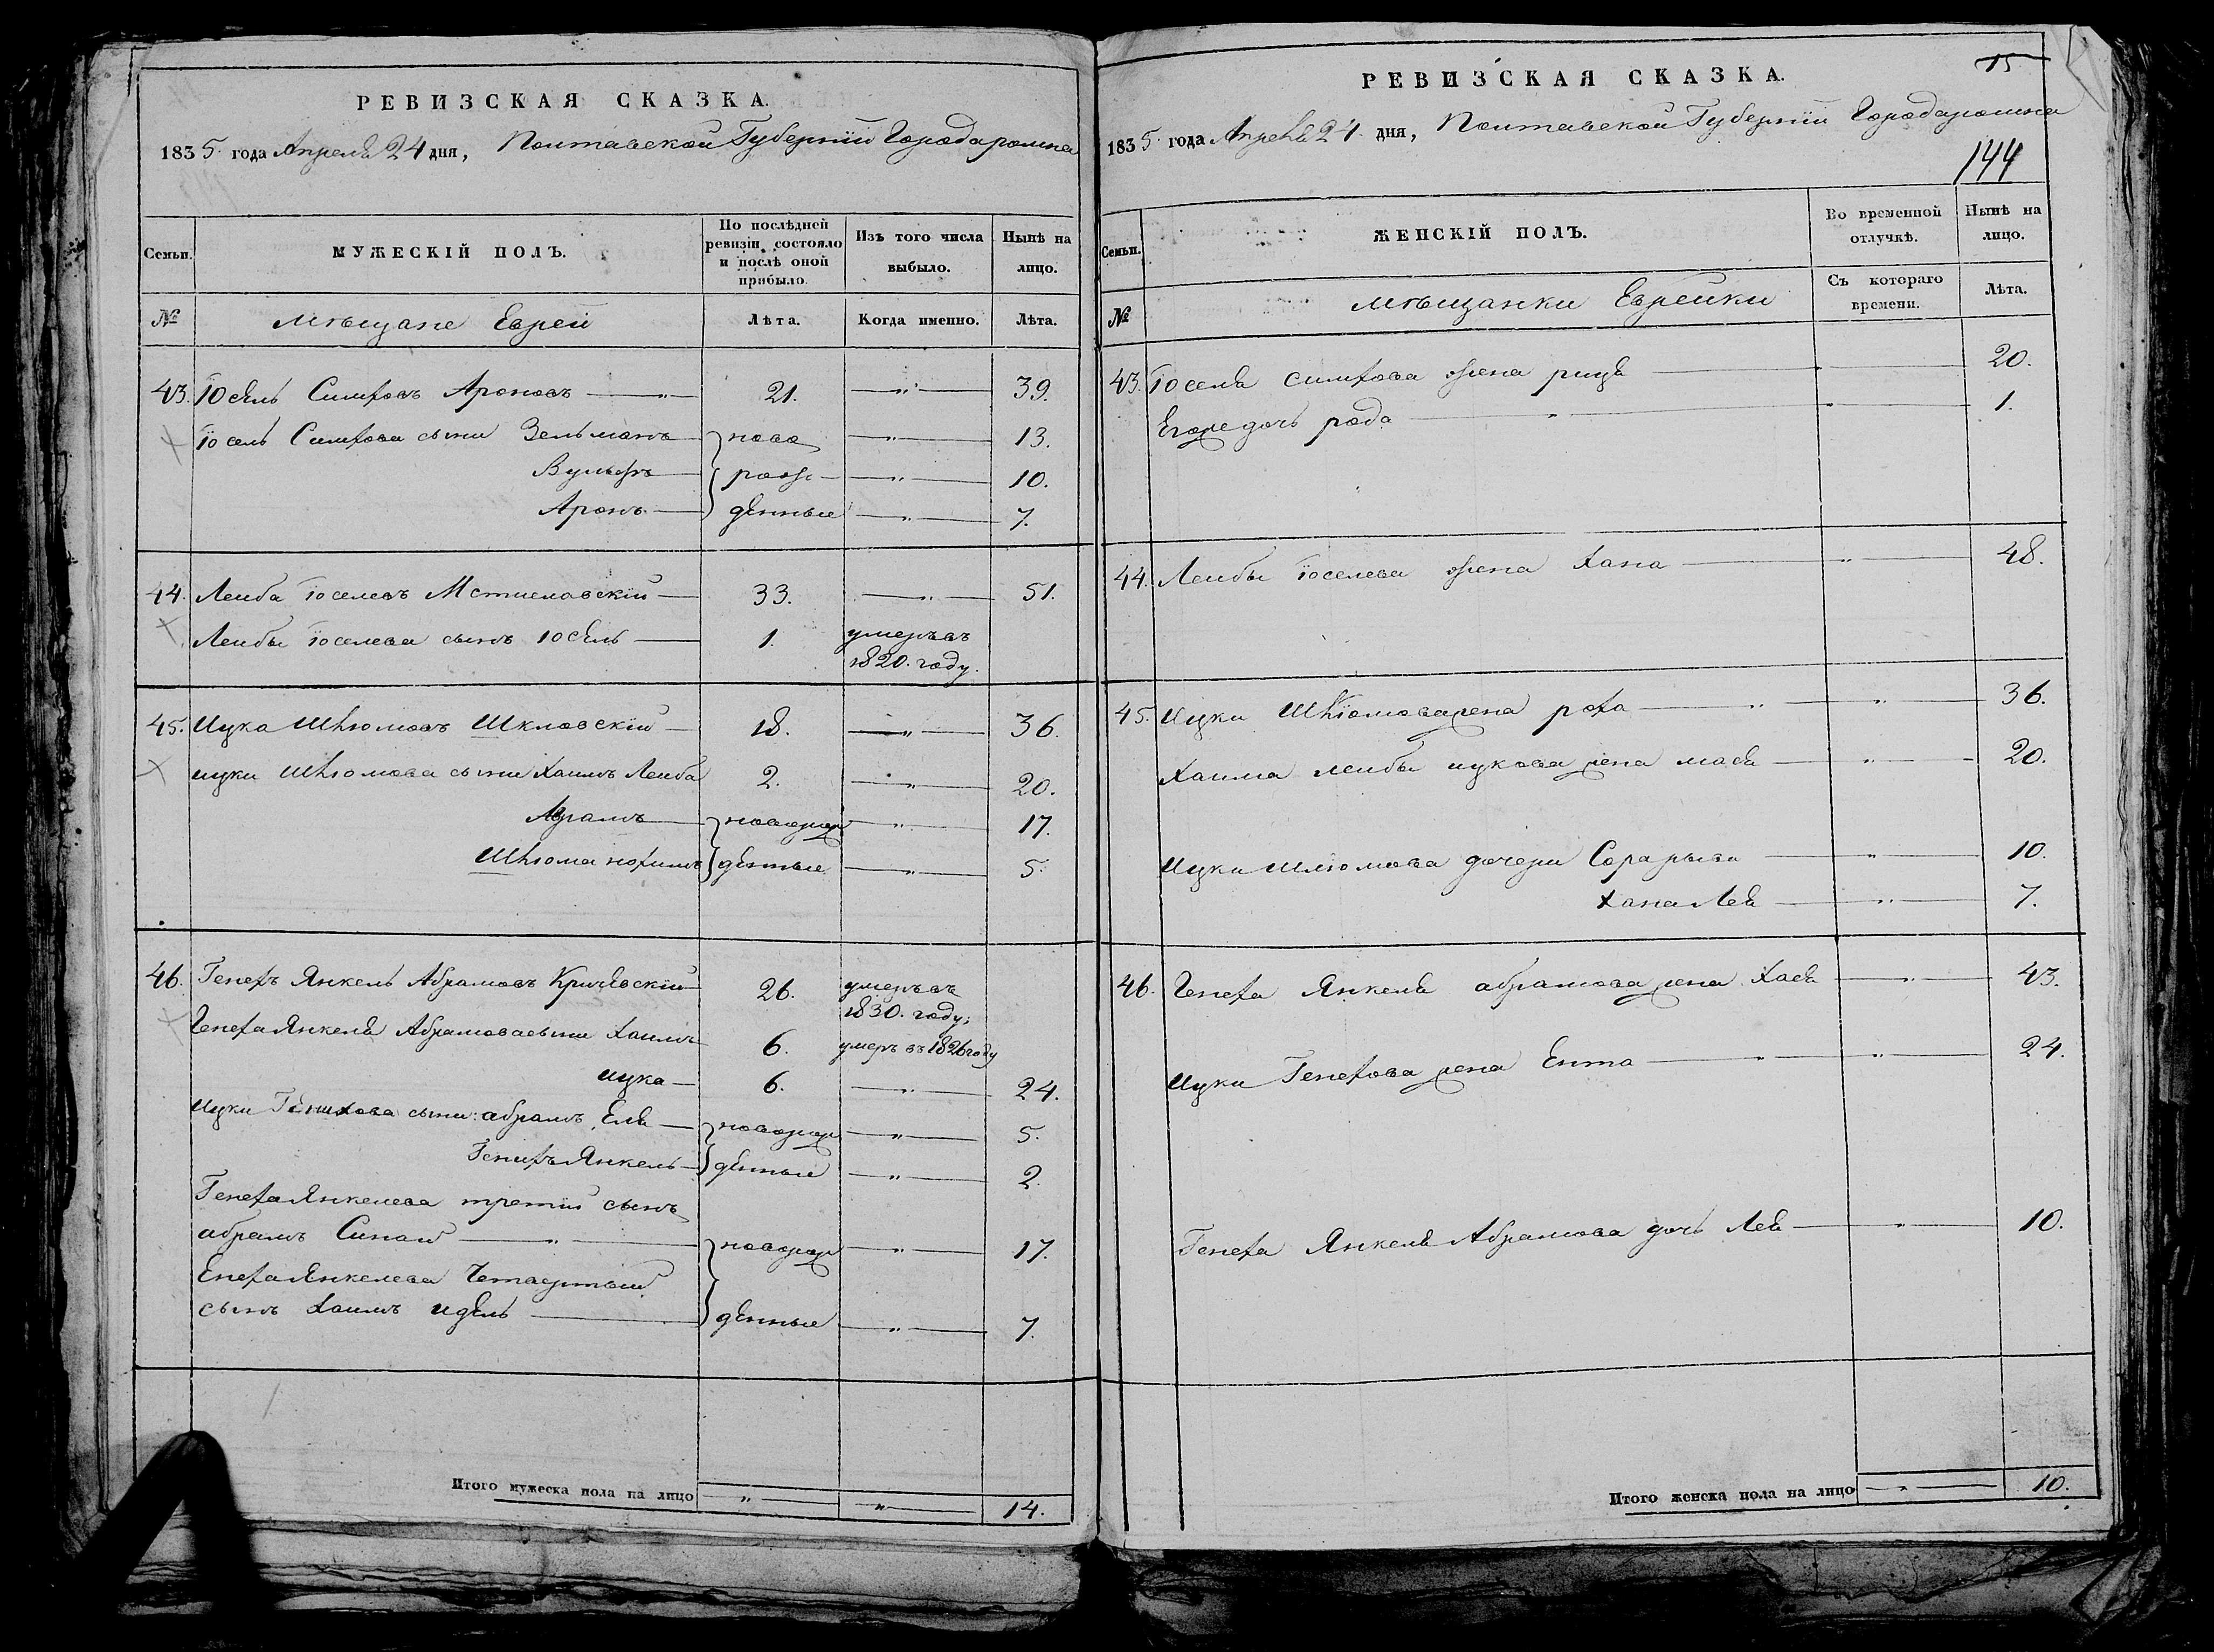 РЕВИЗСКАЯ СКАЗКА.
1835 года Апреля 24 дня, Полтавской Губернїи Города ромна
Семьи.
МУЖЕСКІЙ ПОЛЪ.
По послѣдней ревизіи состояло и послѣ оной прибыло.
Изъ того числа выбыло.
Нынѣ на лицо.
№
мѣщане Евреи
Лѣта.
Когда именно.
Лѣта.
43. Іосель Симховъ Ароновъ — 21. — 39.
Іосель Симхова сыни Зельманъ — ново — 13.
Вульфъ — рож — 10.
Аронъ — денные — 7.
44. Лейба Іоселевъ Мстиславскїй — 33. — 51.
Лейбы Іоселева сынъ Іосель — 1. умеръ въ
1820. году.
45. Ицка Шлюмовъ Шкловскїй — 18. — 36.
ицки Шлюмова сыни Хаимъ Лейба 2. — 20.
Абрамъ — новорож — 17.
Шлюма нохимъ денные — 5.
46. Генехъ Янкель Абрамовъ Кричевскїй — 26. умеръ въ
1830. году;
Генеха Янкеля Абрамова сыни Хаимъ 6. умеръ въ 1826 году
ицка — 6. — 24.
ицки Генихова сыни: абрамъ Еля — новорож — 5.
Генихъ Янкель — денные — 2.
Генеха Янкелева третїй сынъ
абрамъ Синай — новорож — 17.
Енеха Янкелева Четвертый
сынъ Хаимъ идель — денные — 7.
Итого мужеска пола на лицо — „ — „ — 14.
15
РЕВИЗСКАЯ СКАЗКА.
1835 года Апреля 24 дня, Полтавской Губернїи Города ромна
144
Семьи.
ЖЕНСКІЙ ПОЛЪ.
Во временной отлучкѣ.
Нынѣ на лицо.
№
мѣщанки Еврейки
Съ котораго времени.
Лѣта.
43. Іоселя симхова жена рица — 20.
Егоже дочь рода — 1.
44. Лейбы Іоселева жена Хана — 48.
45. Ицки Шлїомова жена роха — 36.
Хаима лейбы ицкова жена мася — 20.
Ицки шлюмова дочери Сора рыва — 10.
Хана Лея — 7.
46. Генеха Янкеля абрамова жена Хася — 43.
Ицки Генехова жена Ента — 24.
Генеха Янкеля Абрамова дочь Лея — 10.
Итого женска пола на лицо — „ — 10.